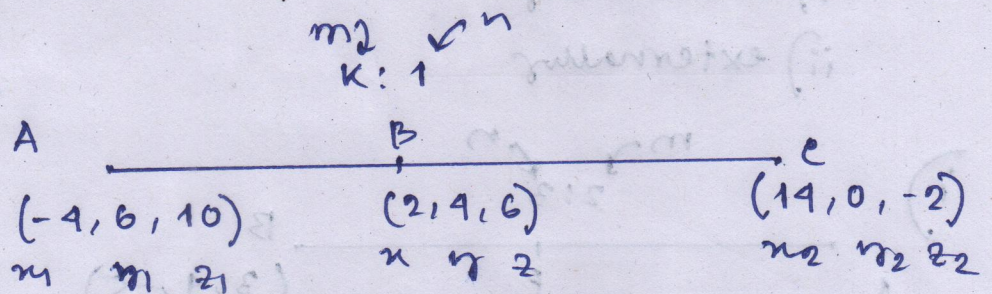 m n
K : 1
A B C
(-4, 6, 10) (2, 4, 6) (14, 0, -2)
x₁ y₁ z₁ x y z x₂ y₂ z₂